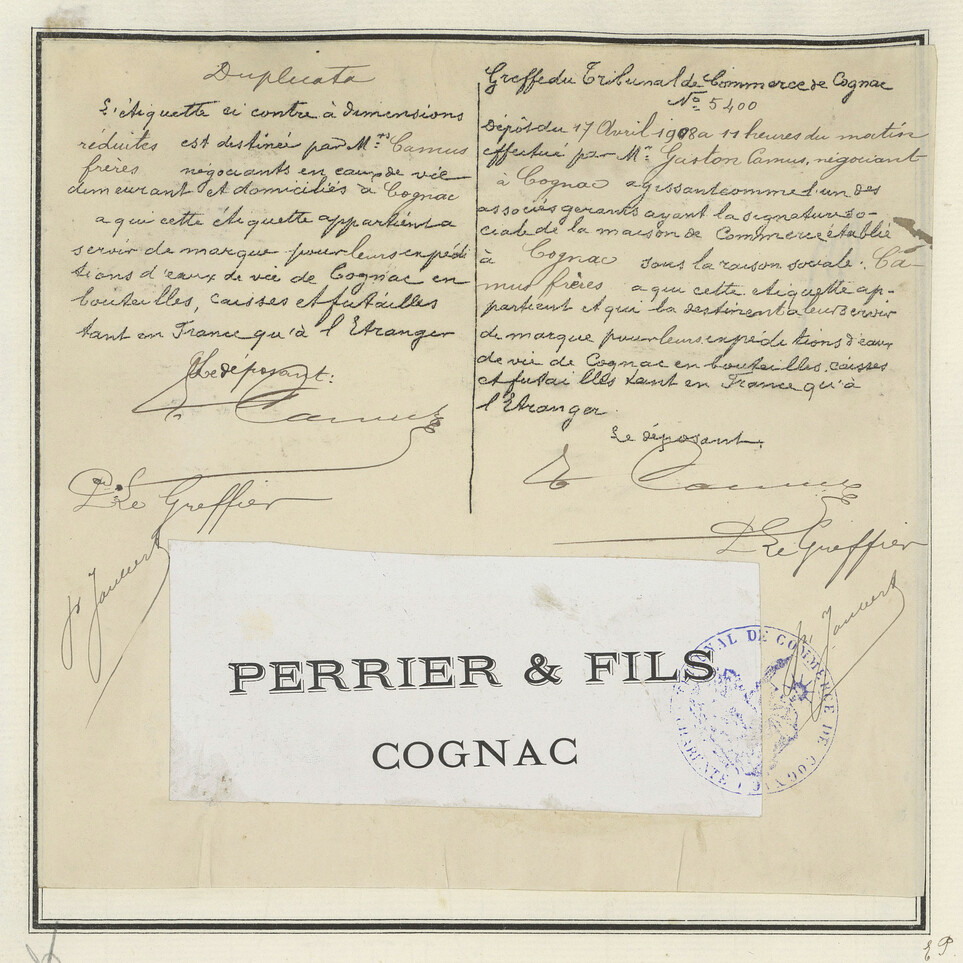 Duplicata
L'étiquette ci contre à dimensions
réduites est destinée par Mrs Camus
frères négociants en eaux de vie
dumeurant et domiciliés à Cognac
a qui cette étiquette appartient a
servir de marque pour leurs expédi
tions d'eaux de vie de Cognac en
bouteilles, caisses et futailles
tant en France qu'à l'Etranger
Le déposant:
Camus
Le Greffier
Greffe du Tribunal de Commerce de Cognac
No 5400
Dépôt du 17 Avril 1908 a 11 heures du matin
effectué par Mr Gaston Camus, négociant
à Cognac agissant comme l'un des
associés gerants ayant la signature so-
ciale de la maison de Commerce établie
à Cognac sous la raison sociale: Ca-
mus frères a qui cette etiquette ap-
partient et qui la destinent a leur servir
de marque pour leurs expéditions d'eaux
de vie de Cognac en bouteilles, caisses
et futailles tant en France qu'à
l'Etranger.
Le déposant.
Camus
Le Greffier
PERRIER & FILS
COGNAC
TRIBUNAL DE COMMERCE DE COGNAC
CHARENTE
E P.